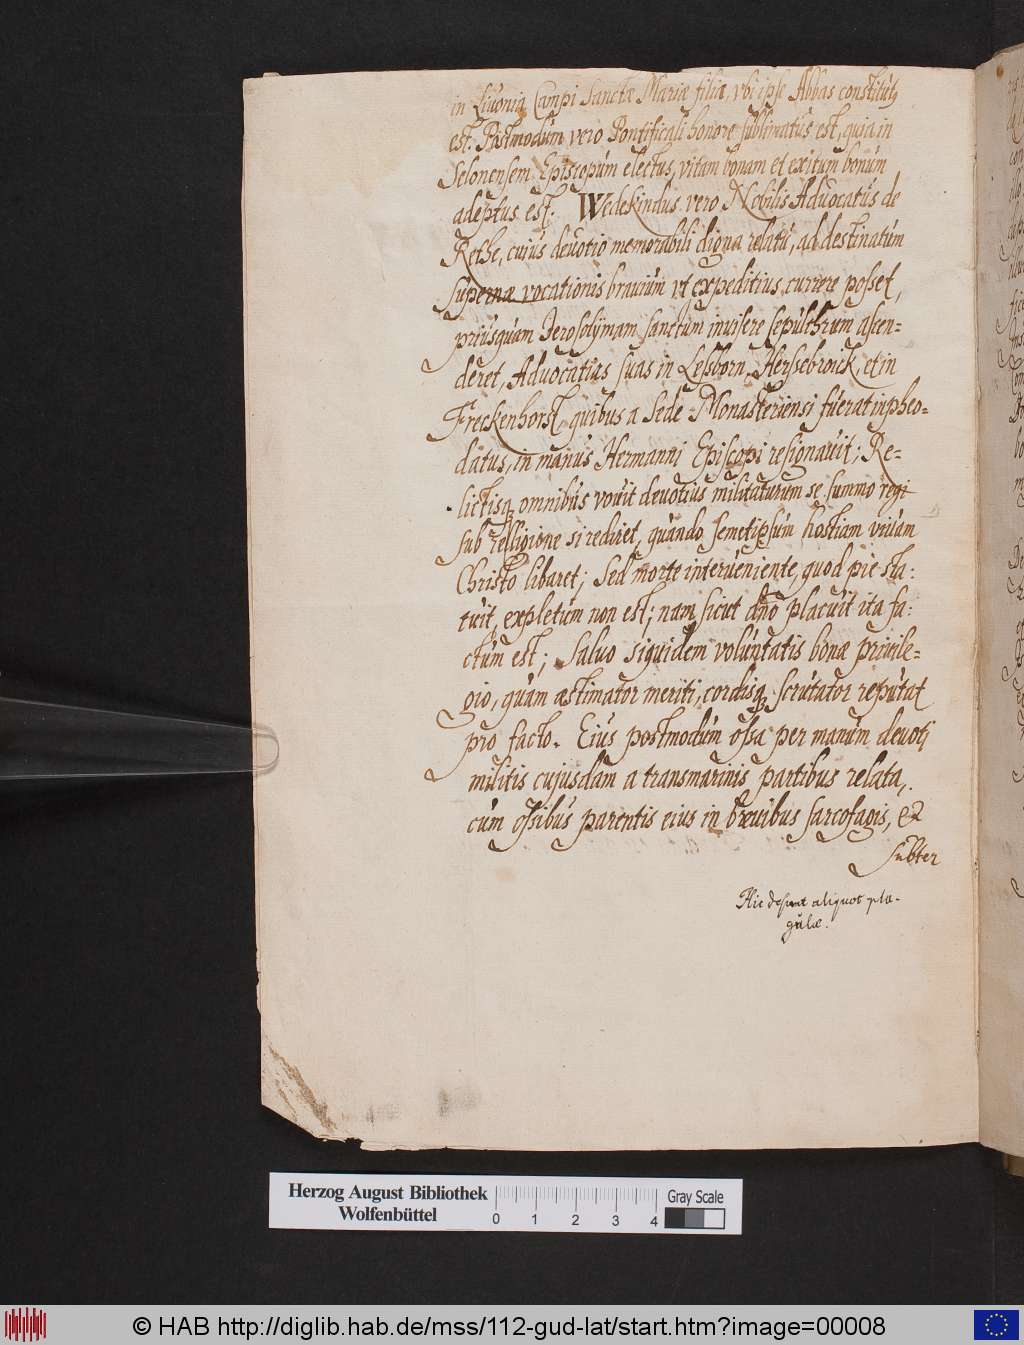 in Liuonia Campi Sanctæ Mariæ filiæ, vbi ipse Abbas constitutꝰ
est. Postmodùm vero Pontificali honore sublimatus est, quia in
Selonensem Episcopùm electus, vitam bonam et exitum bonùm
adeptus est. Wedekindus vero Nobilis Aduocatùs de
Rethe, cuius deuotio memorabili digna relatù, ad destinatùm
supernæ vocationis brauiùm vt expeditius currere posset,
priùsquàm Jerosolÿmam sanctùm inuisere sepùlchrum ascen-
deret, Aduocatias suas in Lesborn, Herssebroick, et in
Freckenhorst quibus a Sede Monasteriensi fùerat inpheo-
datus, in manùs Hermanni Episcopi resignauit; Re-
lictisq omnibùs vouit deuotiùs militaturum se summo regi
sub relligione si rediret, quàndo semetipsùm hostiam viuam
Christo libaret; Sed morte interùeniente, quod pie sta-
tùit, expletùm non est; nam sicut dño placùit ita fa-
ctùm est; Saluo siquidem volùntatis bonæ priuile-
gio, quàm æstimator meriti, cordisq scrùtator repùtat
pro facto. Eiùs postmodùm ossa per manùm deuoti
militis cujusdam a transmarinis partibus relata,
cùm ossibùs parentis eius in breuibus sarcofagis, &
subter
Hic desunt aliquot pla-
gulæ.
Herzog August Bibliothek
Wolfenbüttel
0 1 2 3 4
Gray Scale
© HAB http://diglib.hab.de/mss/112-gud-lat/start.htm?image=00008